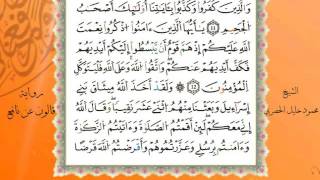 وَالَّذِينَ كَفَرُوا وَكَذَّبُوا بِـَٔايَٰتِنَا أُوْلَٰٓئِكَ أَصْحَٰبُ
الْجَحِيمِ ١١ يَٰٓأَيُّهَا الَّذِينَ ءَامَنُوا اذْكُرُوا نِعْمَتَ
اللَّهِ عَلَيْكُمْ إِذْ هَمَّ قَوْمٌ أَنْ يَبْسُطُوا إِلَيْكُمْ أَيْدِيَهُمْ
فَكَفَّ أَيْدِيَهُمْ عَنكُمْ وَاتَّقُوا اللَّهَ وَعَلَى اللَّهِ فَلْيَتَوَكَّلِ
الْمُؤْمِنُونَ ١٢ وَلَقَدْ أَخَذَ اللَّهُ مِيثَٰقَ بَنِي
إِسْرَآءِيلَ وَبَعَثْنَا مِنْهُمُ اثْنَيْ عَشَرَ نَقِيبًا وَقَالَ اللَّهُ
إِنِّي مَعَكُمْ لَئِنْ أَقَمْتُمُ الصَّلَوٰةَ وَءَاتَيْتُمُ الزَّكَوٰةَ
وَءَامَنتُم بِرُسُلِي وَعَزَّرْتُمُوهُمْ وَأَقْرَضْتُمُ اللَّهَ قَرْضًا
الشيخ
محمود خليل الحصري
رواية
قالون عن نافع